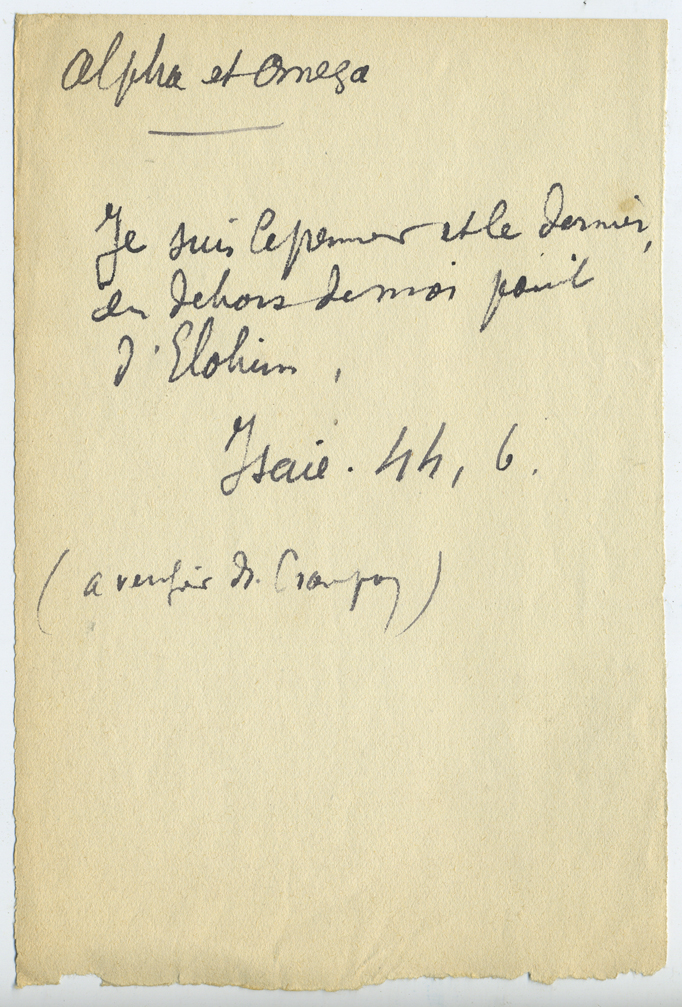 Alpha et Omega
Je suis le premier et le dernier,
en dehors de moi point
d'Elohim,
Isaïe. 44, 6.
(a vérifier ds. Crampon)